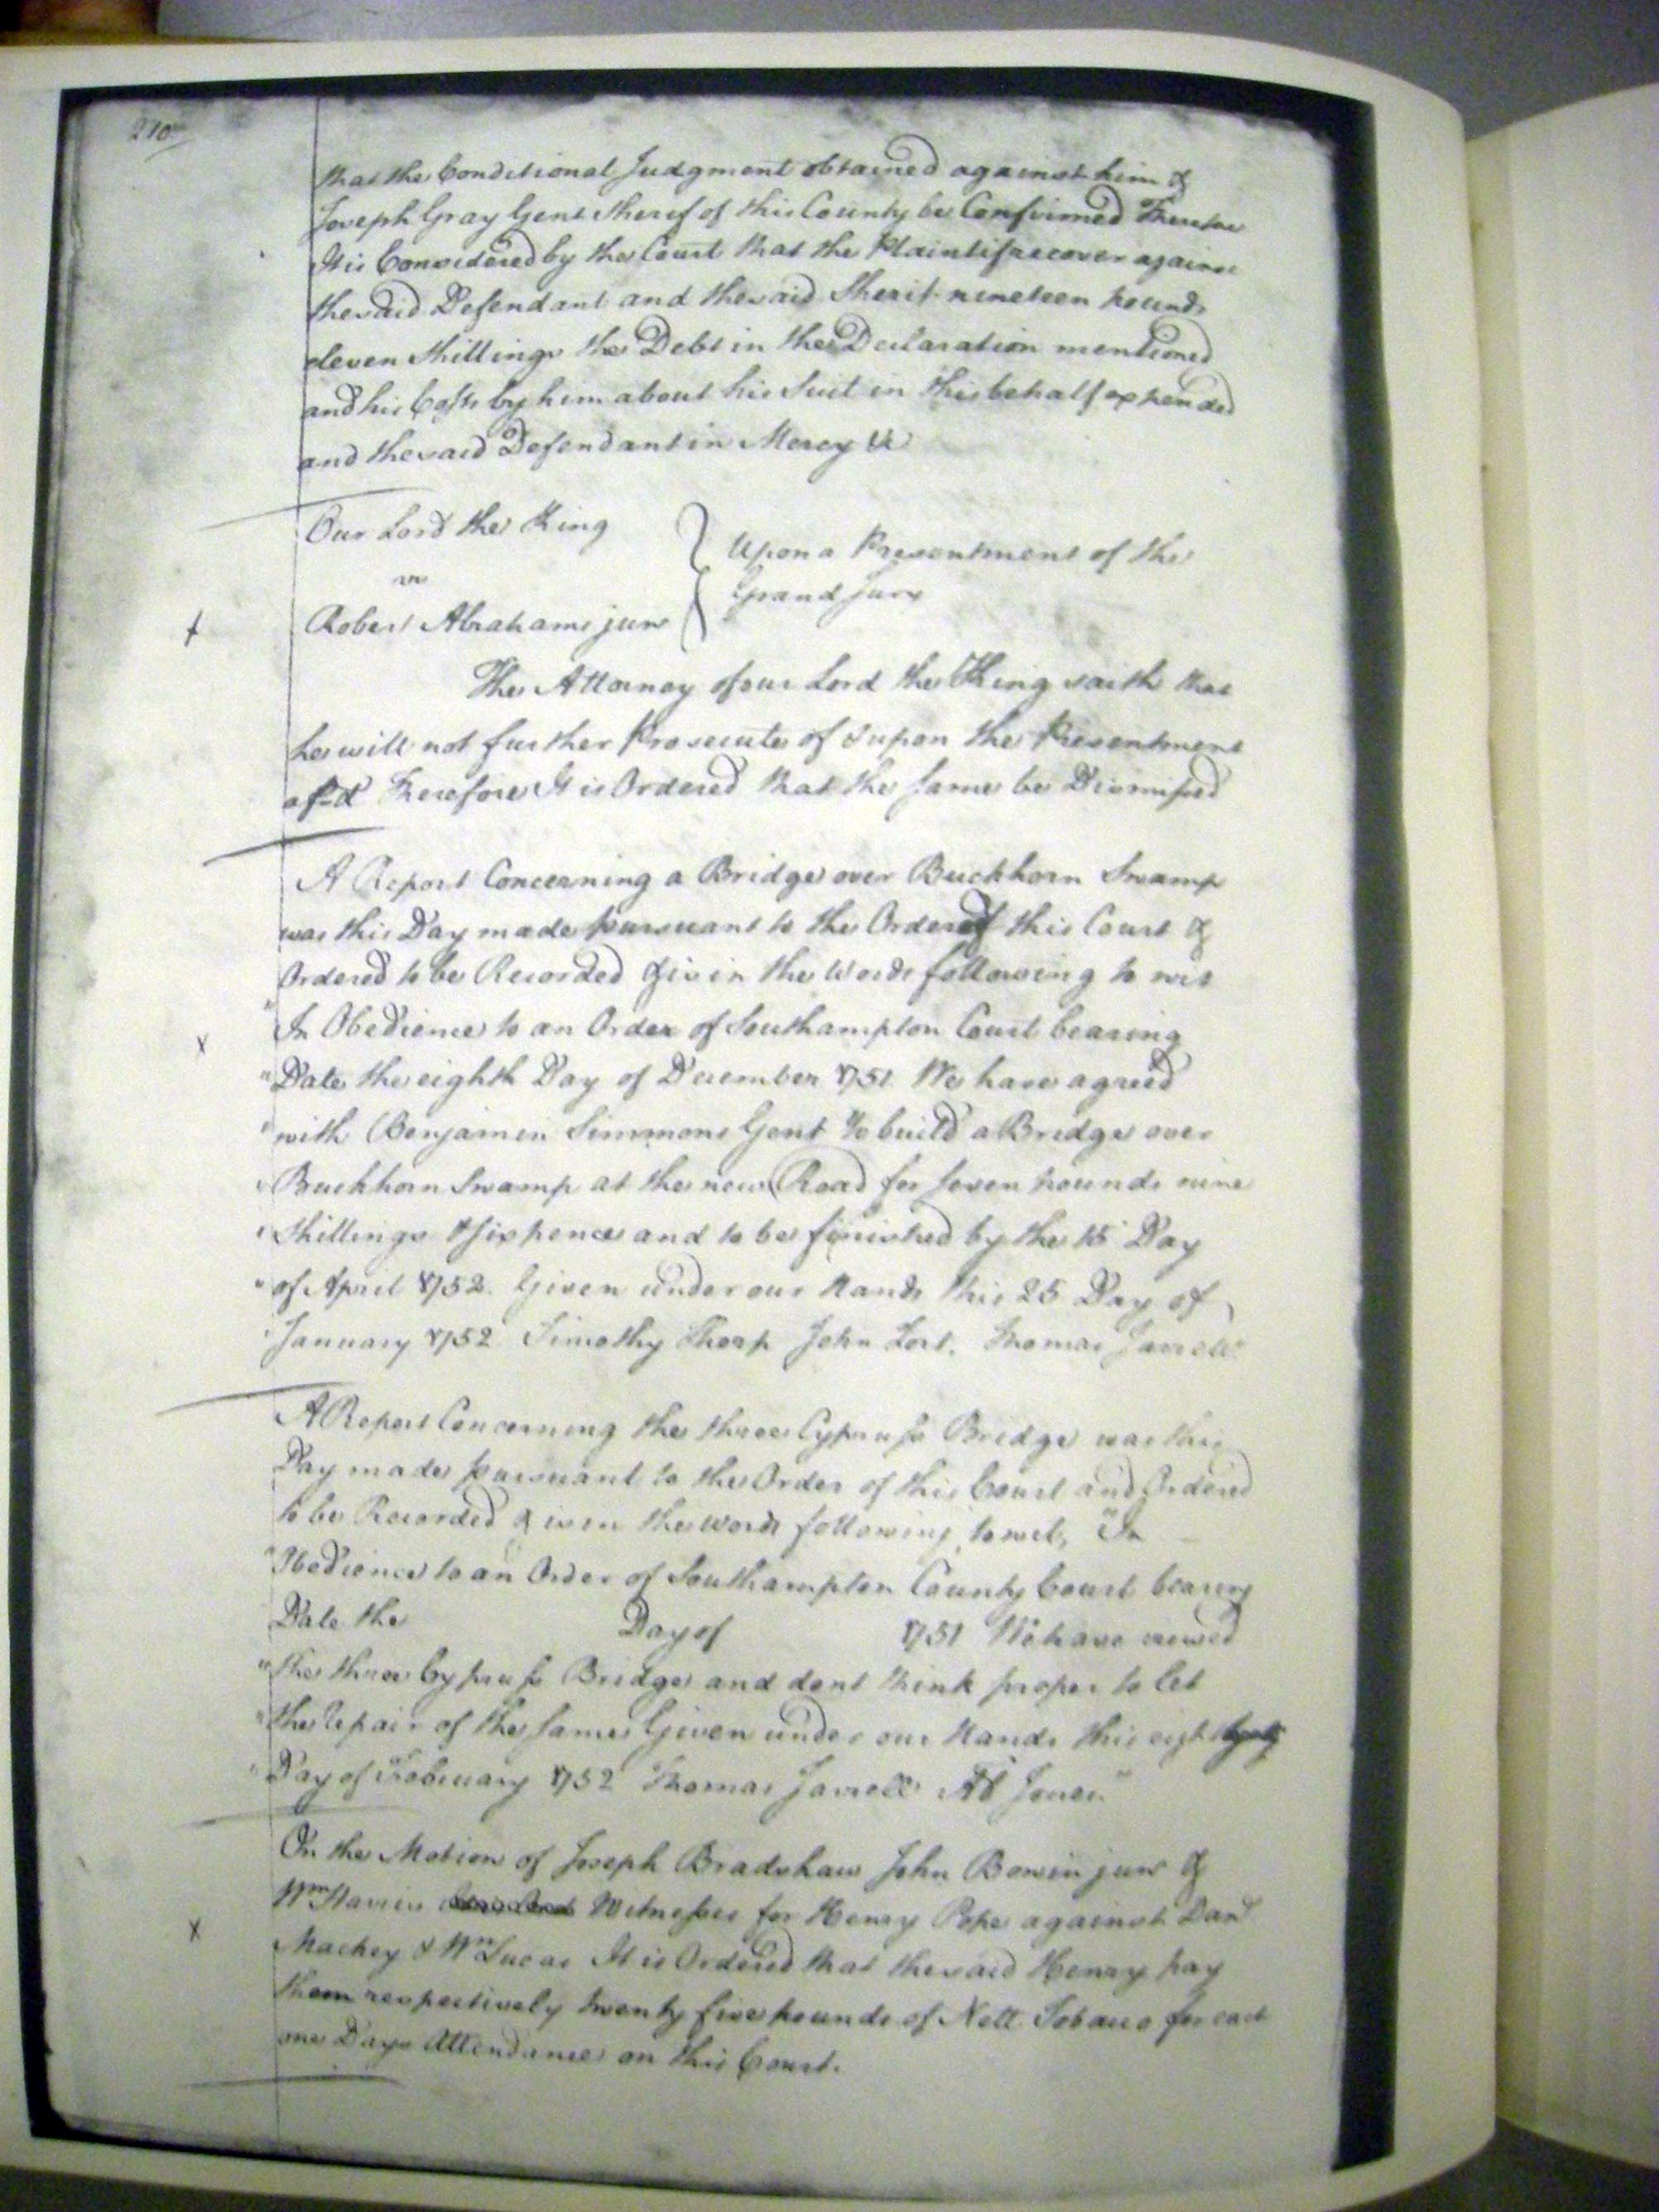 210
that the Conditional Judgment obtained against him &
Joseph Gray Gent Sherif of this County be Confirmed Therefore
It is Considered by the Court that the Plaintif recover against
the said Defendant and the said Sherif nineteen pounds
eleven Shillings the Debt in the Declaration mentioned
and his Costs by him about his Suit in this behalf expended
and the said Defendant in Mercy &c
Our Lord the King
vs
Robert Abrahams junr
Upon a Presentment of the
Grand Jury
The Attorney of our Lord the King saith that
he will not further Prosecute of & upon the Presentment
afsd Therefore It is Ordered that the same be Dismissed
A Report Concerning a Bridge over Buckhorn Swamp
was this Day made pursuant to the Order of this Court &
Ordered to be Recorded & is in the Words following to wit
"In Obedience to an Order of Southampton Court bearing
"Date the eighth Day of December 1751 We have agreed
"with Benjamin Simmons Gent to build a Bridge over
"Buckhorn Swamp at the new Road for seven pounds nine
"Shillings & six pence and to be finished by the 15 Day
"of April 1752. Given under our Hands this 25 Day of
"January 1752 Timothy Tharp John Lort. Thomas Jarrell"
A Report Concerning the three Cypruss Bridge was this
Day made pursuant to the Order of this Court and Ordered
to be Recorded & is in the words following, to wit, "In
"Obedience to an Order of Southampton County Court bearing
Date the Day of 1751 We have viewed
"the three Cypruss Bridge and dont think proper to let
"the repair of the same Given under our Hands this eight
"Day of February 1752 Thomas Jarrell Ad Jones"
On the Motion of Joseph Bradshaw John Bowin junr &
Wm Harris Witnesses for Henry Pope against Danl
Mackey & Wm Lucas It is Ordered that the said Henry pay
them respectively twenty five pounds of Nett Tobacco for each
one Days Attendance on this Court.